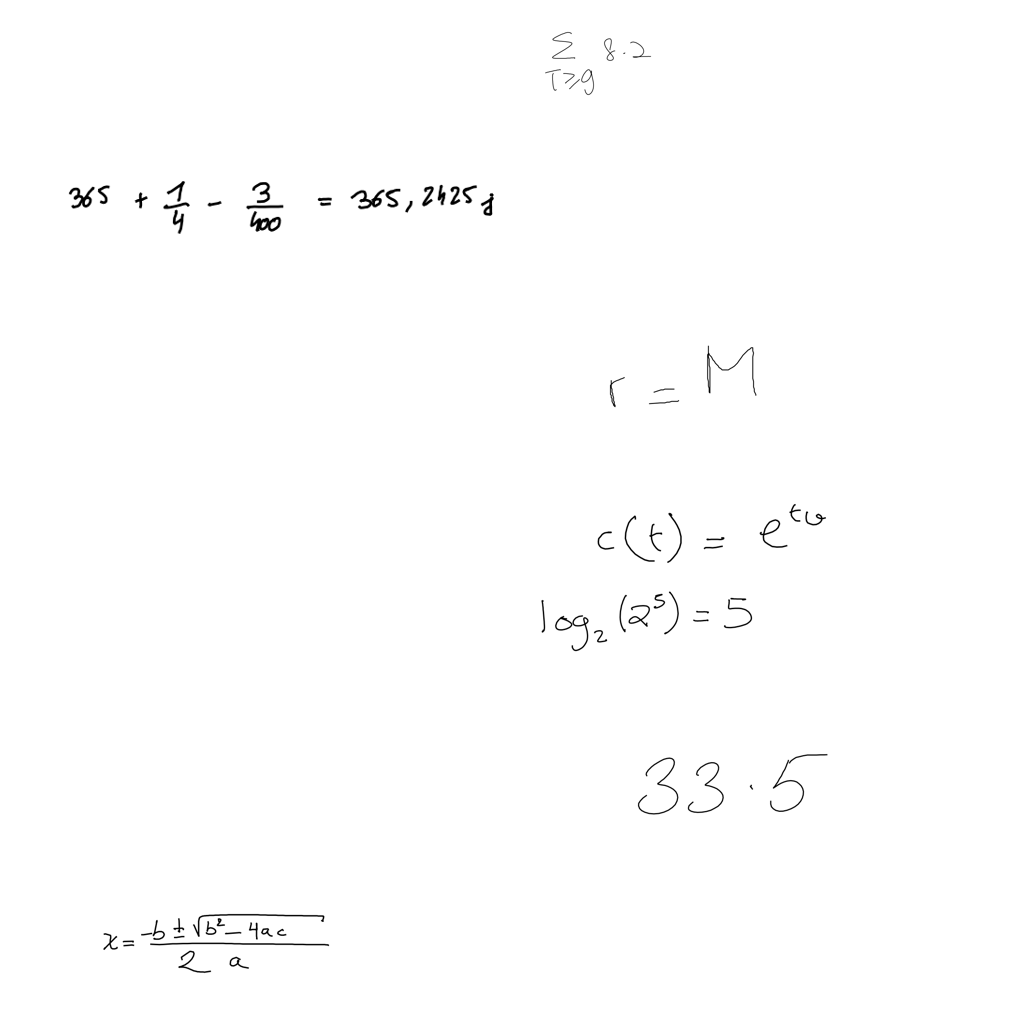 \sum_{T \geq g} 8.2
365 + \frac{1}{4} - \frac{3}{400} = 365,2425 j
r = M
c(t) = e^{tv}
\log_2(2^5) = 5
33.5
x = \frac{-b \pm \sqrt{b^2 - 4ac}}{2a}